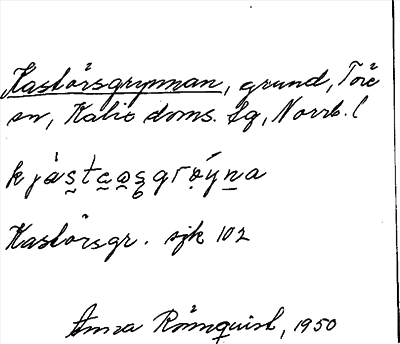 Kastörsgrynnan, grund, Töre
sn, Kalix doms. lg, Norrb. l
Kastörsgr. sjk 102
Anna Rönnquist, 1950